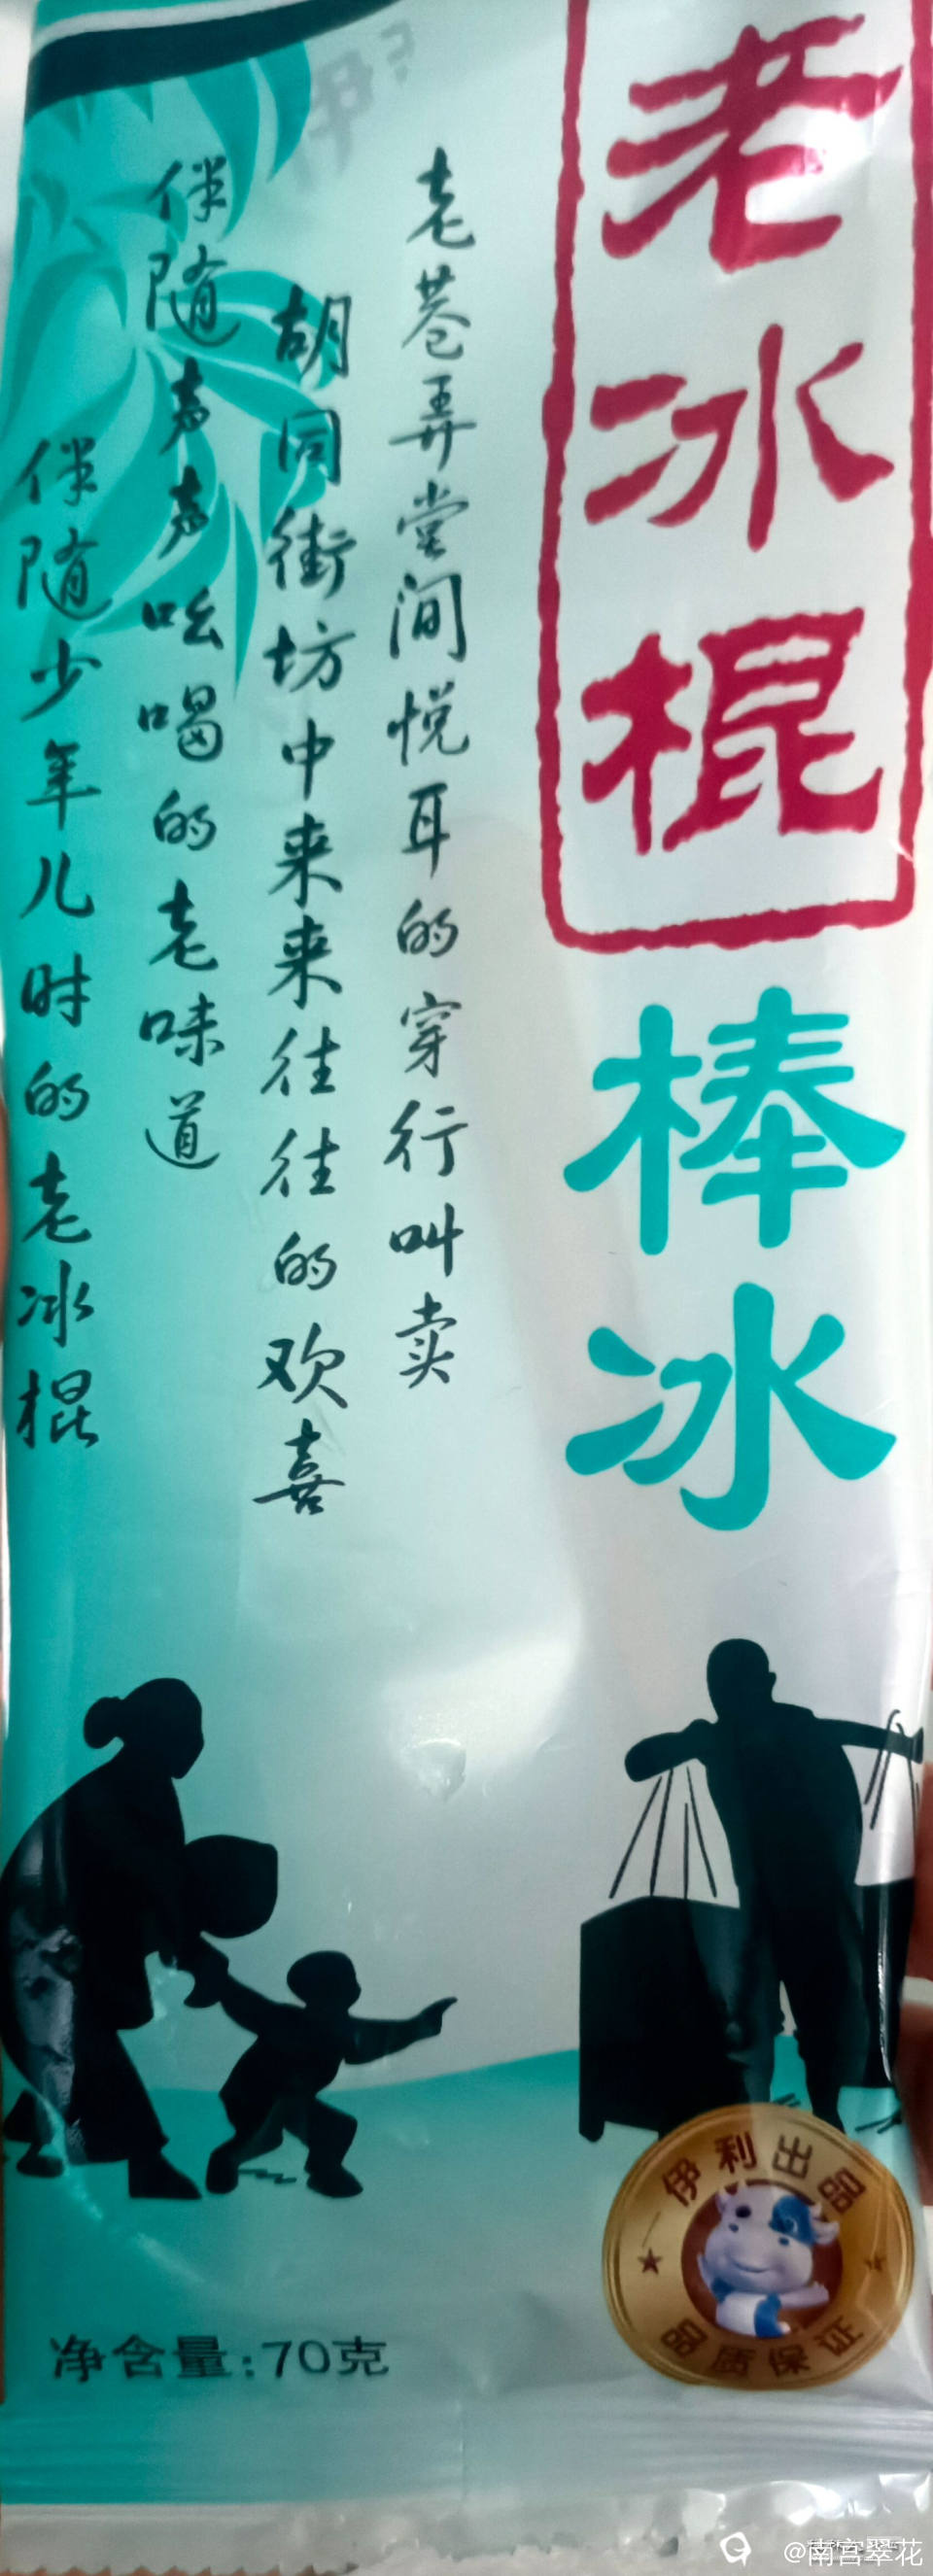 老冰棍
棒冰
老巷弄堂间悦耳的穿行叫卖
胡同街坊中来来往往的欢喜
伴随声声吆喝的老味道
伴随少年儿时的老冰棍
伊利出品
品质保证
净含量:70克
@南宫翠花